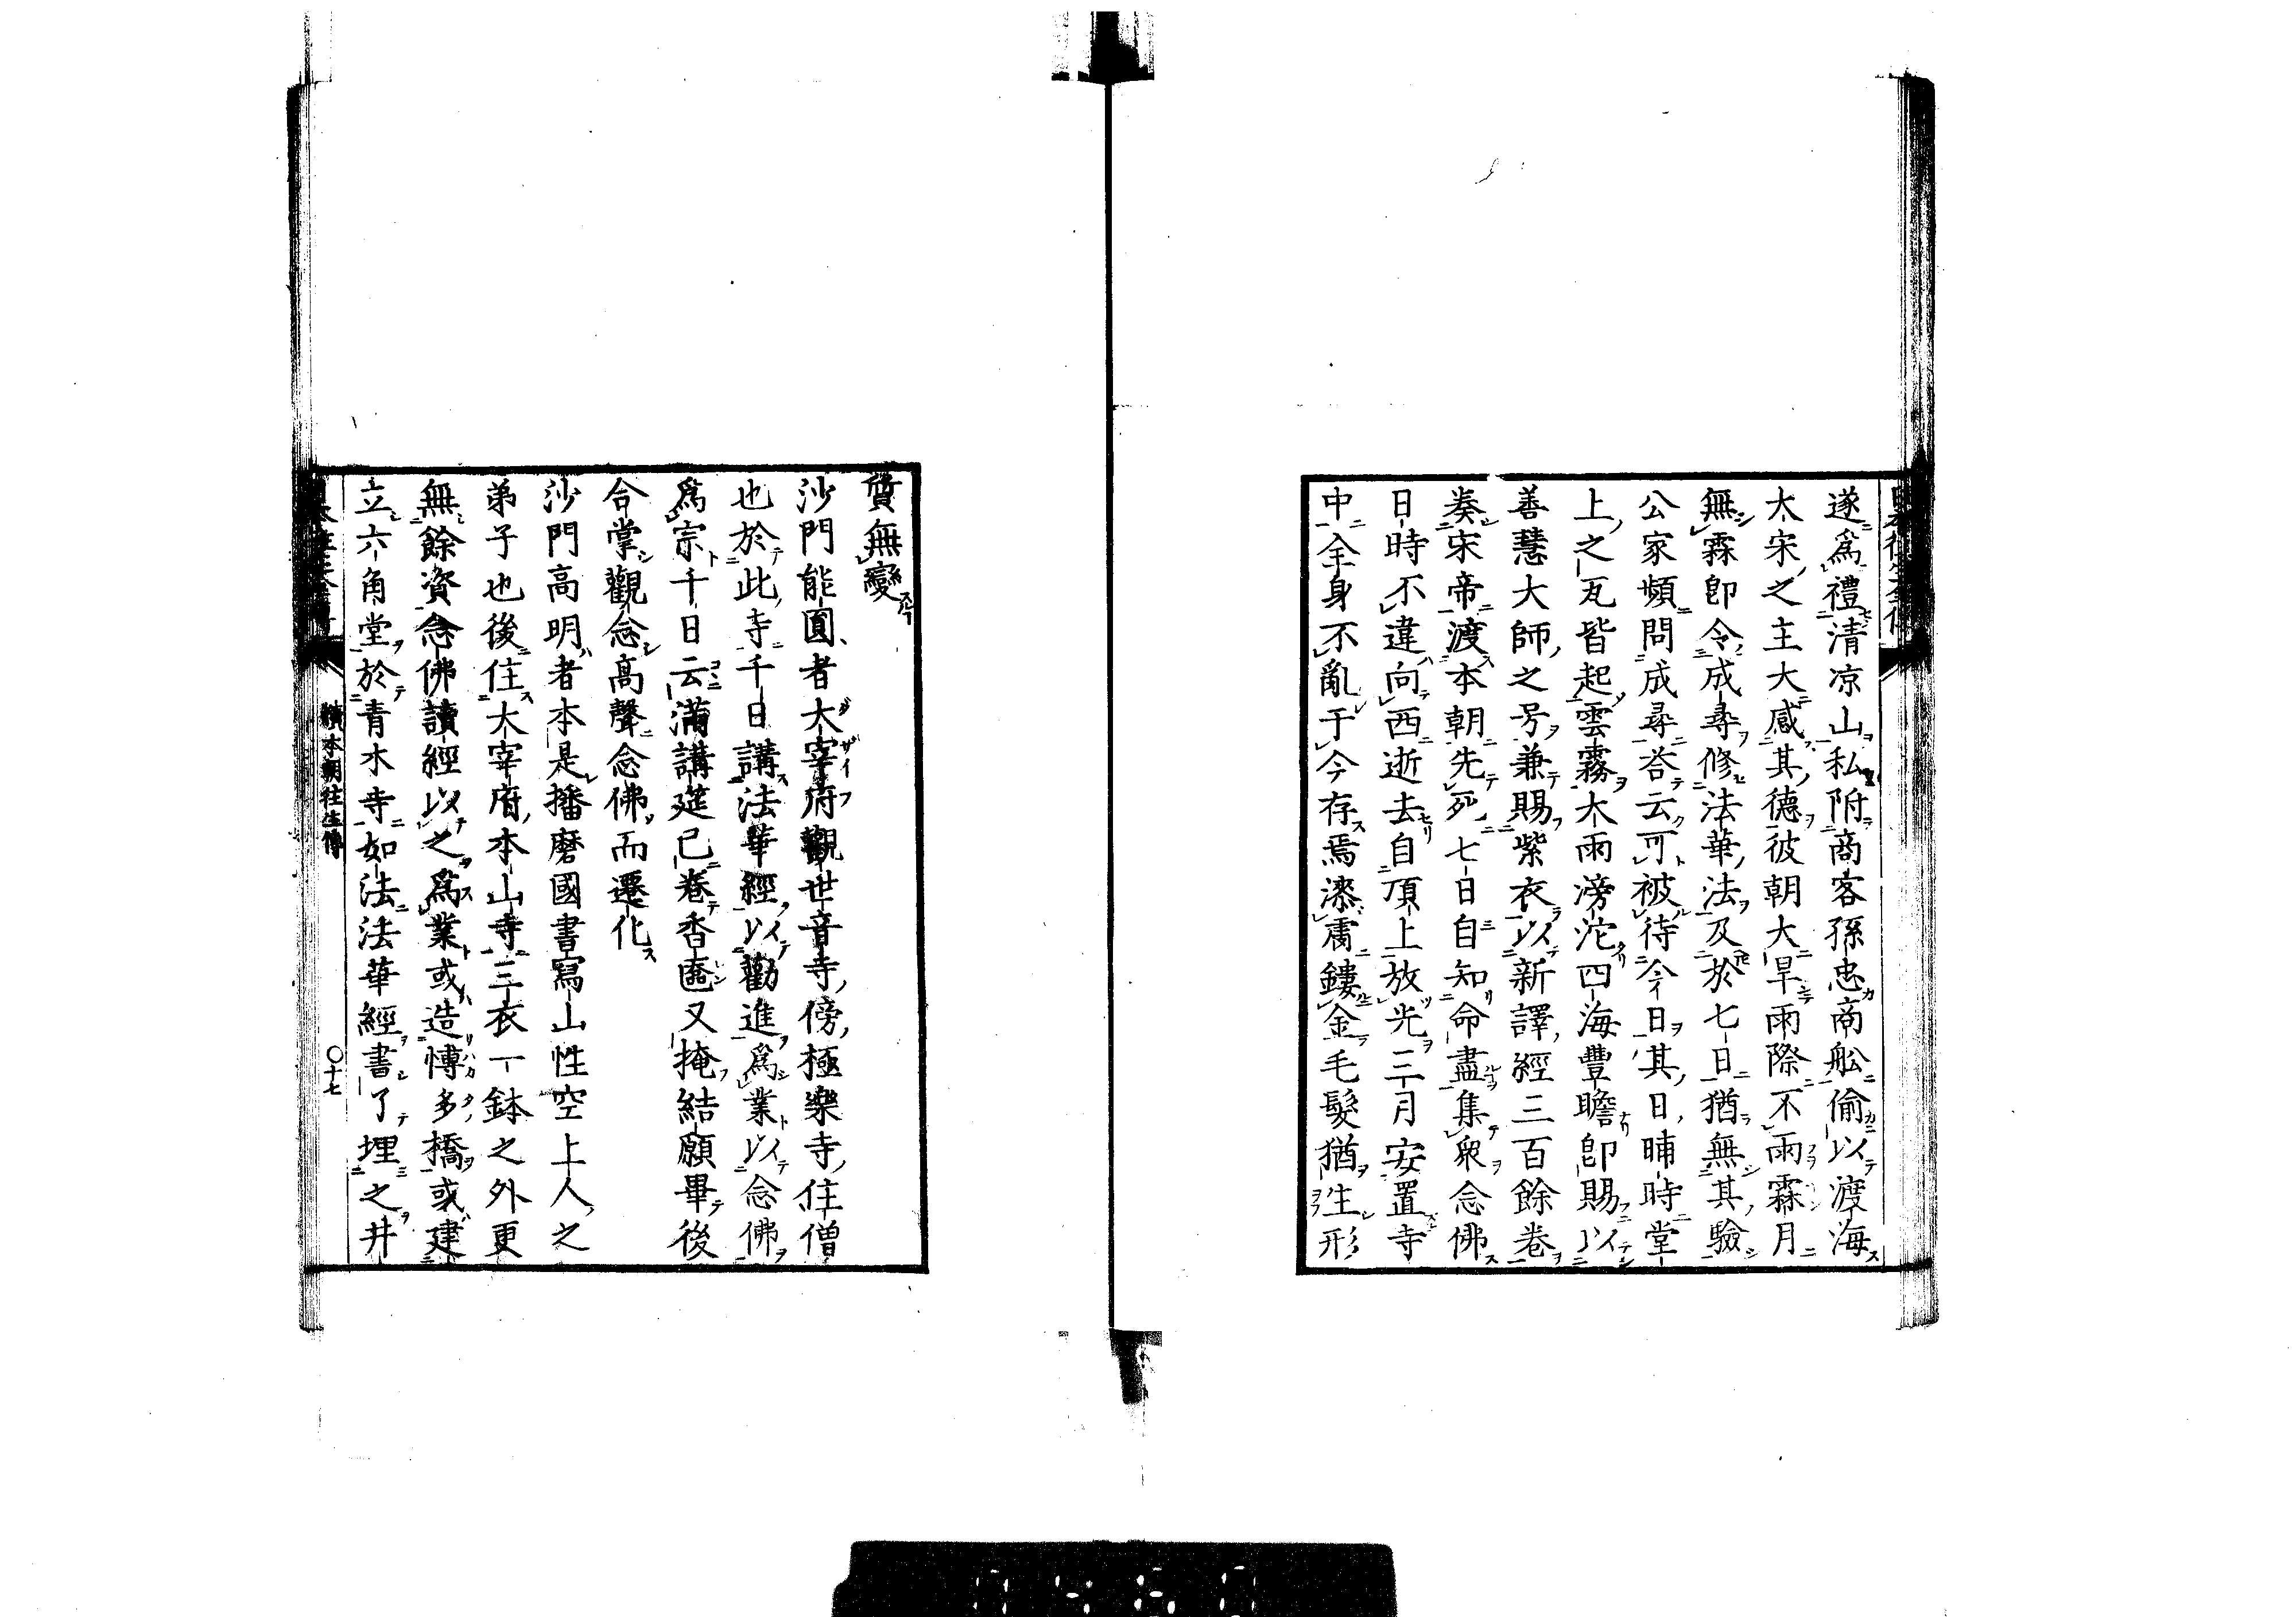 遂爲禮清凉山私附商客孫忠商舩偷以渡海
大宋之主大感其德彼朝大旱雨際不雨霖月
無霖卽令成尋修法華法及於七日猶無其驗
公家頻問成尋答云可被待今日其日晡時堂
上之瓦皆起雲霧大雨滂沱四海豐贍卽賜以
善慧大師之号兼賜紫衣以新譯經三百餘卷
奏宋帝渡本朝先死七日自知命盡集衆念佛
日時不違向西逝去自頂上放光三月安置寺
中全身不亂于今存焉漆膚鏤金毛髮猶生形
質無變
沙門能圓者大宰府觀世音寺傍極樂寺住僧
也於此寺千日講法華經以勸進爲業以念佛
爲宗千日云滿講莚已卷香匳又掩結願畢後
合掌觀念高聲念佛而遷化
沙門高明者本是播磨國書寫山性空上人之
弟子也後住大宰府本山寺三衣一鉢之外更
無餘資念佛讀經以之爲業或造愽多橋或建
立六角堂於青木寺如法法華經書了埋之井
續本朝往生傳
〇十七